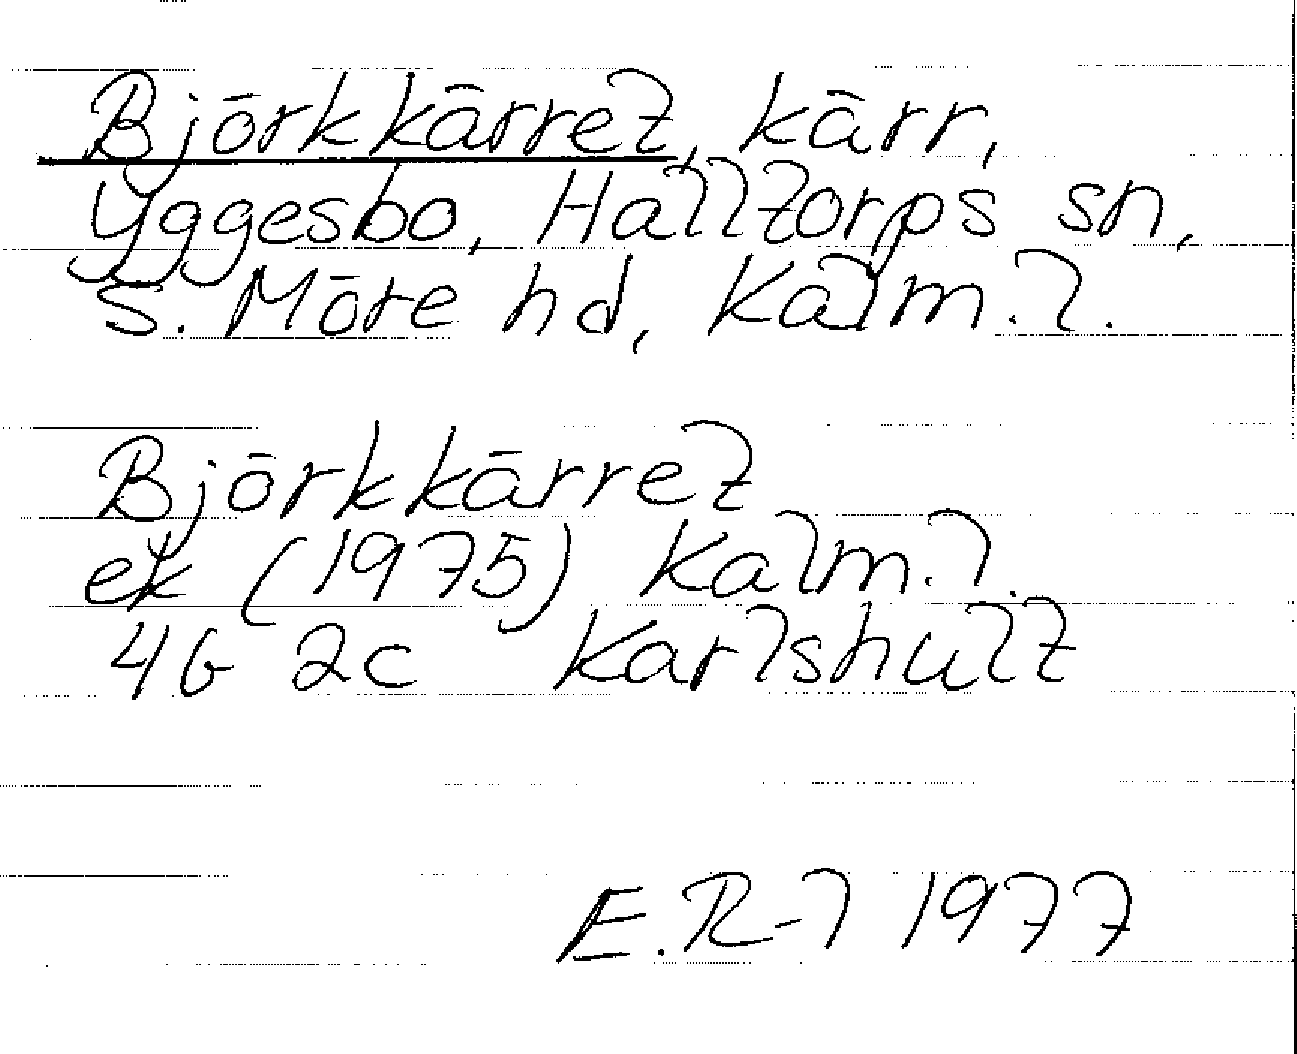 Björkkärret, kärr,
Yggesbo, Halltorps sn,
S. Möre hd, Kalm. l.
Björkkärret
ek (1975) Kalm. l.
4G 2c Karlshult
E. R-l 1977